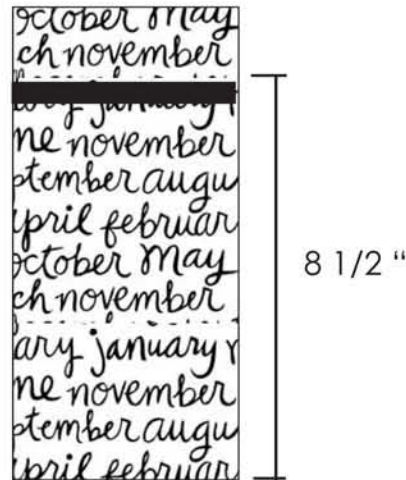 october may
ch november
january
ne november
ptember augu
april februar
october may
ch november
ary january r
ne november
ptember augu
april februar
8 1/2 “